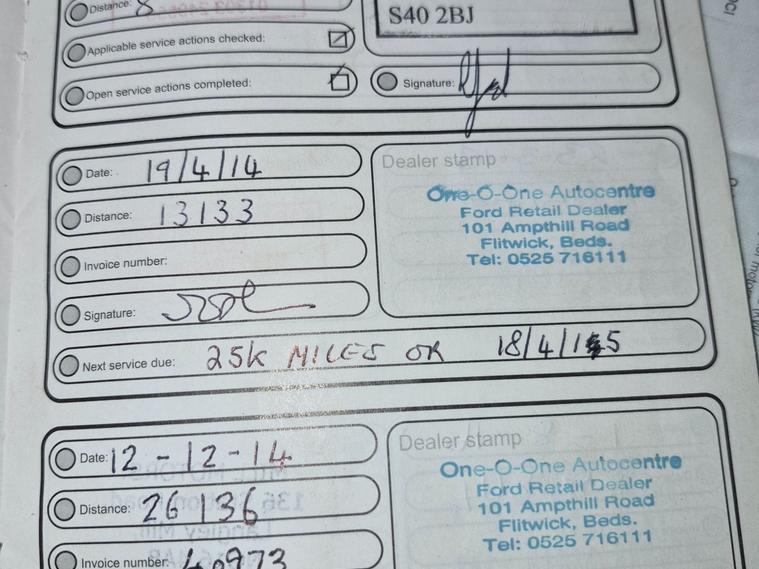 Distance: 8
S40 2BJ
Applicable service actions checked:
Open service actions completed:
Signature:
Date: 19/4/14
Dealer stamp
Distance: 13133
One-O-One Autocentre
Ford Retail Dealer
101 Ampthill Road
Flitwick, Beds.
Tel: 0525 716111
Invoice number:
Signature:
Next service due: 25K MILES OR 18/4/15
Date: 12-12-14
Dealer stamp
Distance: 26136
One-O-One Autocentre
Ford Retail Dealer
101 Ampthill Road
Flitwick, Beds.
Tel: 0525 716111
Invoice number: